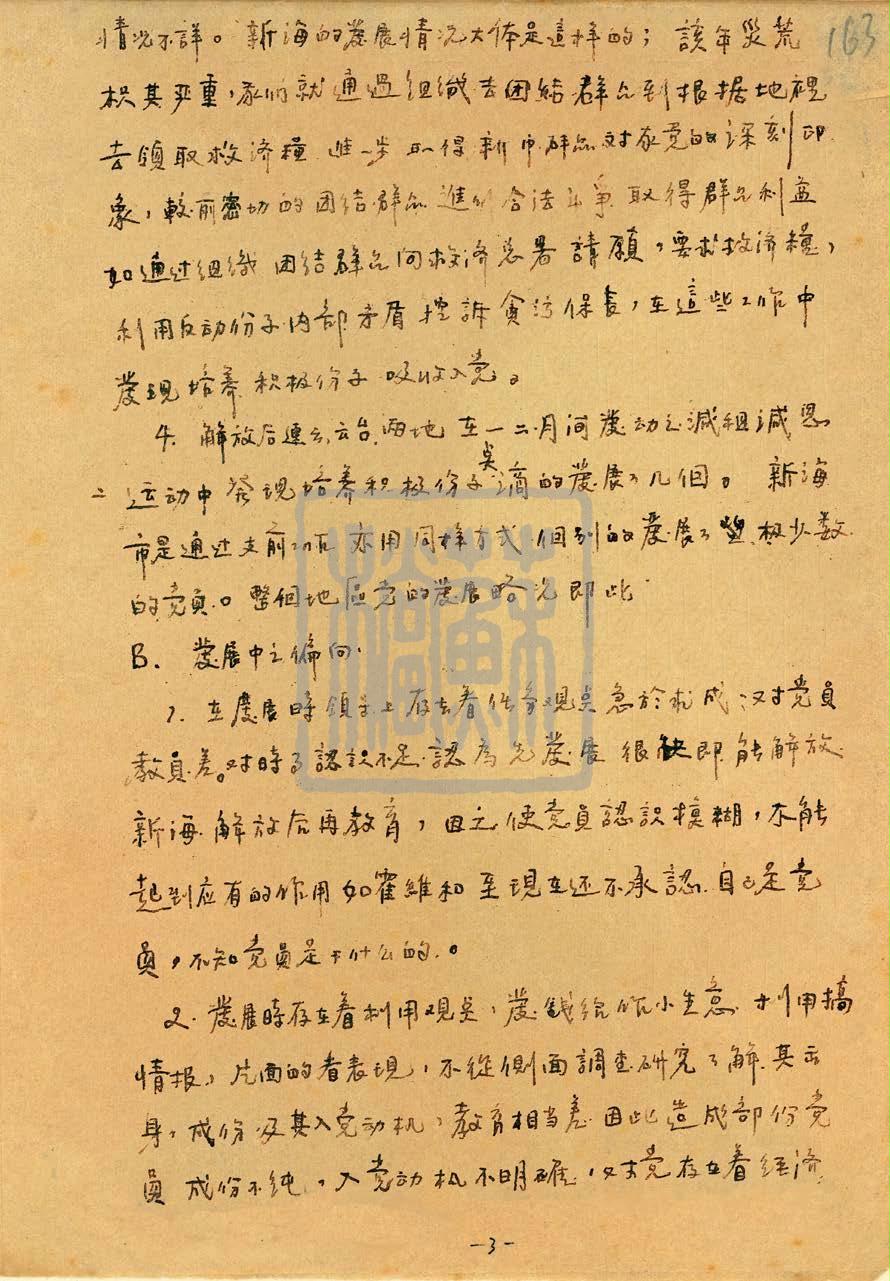 163
情况不詳。新海的發展情况大体是這样的；該年災荒
极其严重，我们就通過組織去团結群众到根据地裡
去領取救济糧 進一步取得新市群众对我党的深刻印
象，較前密切的团結群众進行合法斗爭 取得群众利益
如通过组織 团結群众向救济总署請願，要求救济糧，
利用反动份子内部矛盾 控訴貪污保長，在這些工作中
發現培养积极份子 吸收入党。
4. 解放后連云、云台 两地 在一二月间發动之减租减息
运动中 發現培养积极份子 点滴的發展了几個。新海
市是通过支前工作 亦用同样方式 個别的發展了 极少数
的党員。整個地區党的發展略况即此
B. 發展中之偏向
1. 在發展時領导上存在着任务观点急於求成 对党員
教育差。对時局認识不足 認為先發展 很快即能解放
新海 解放后再教育，因之使党員認识模糊，不能
起到应有的作用如霍維和至現在还不承認自己是党
員，不知党員是干什么的。
2. 發展時存在着利用观点，發錢给作小生意 利用搞
情报，片面的看表現，不從側面調查研究了解其出
身，成份及其入党动机，教育相当差 因此造成部份党
員 成份不纯，入党动机不明確，对党存在着经济
-3-
蘇
檔